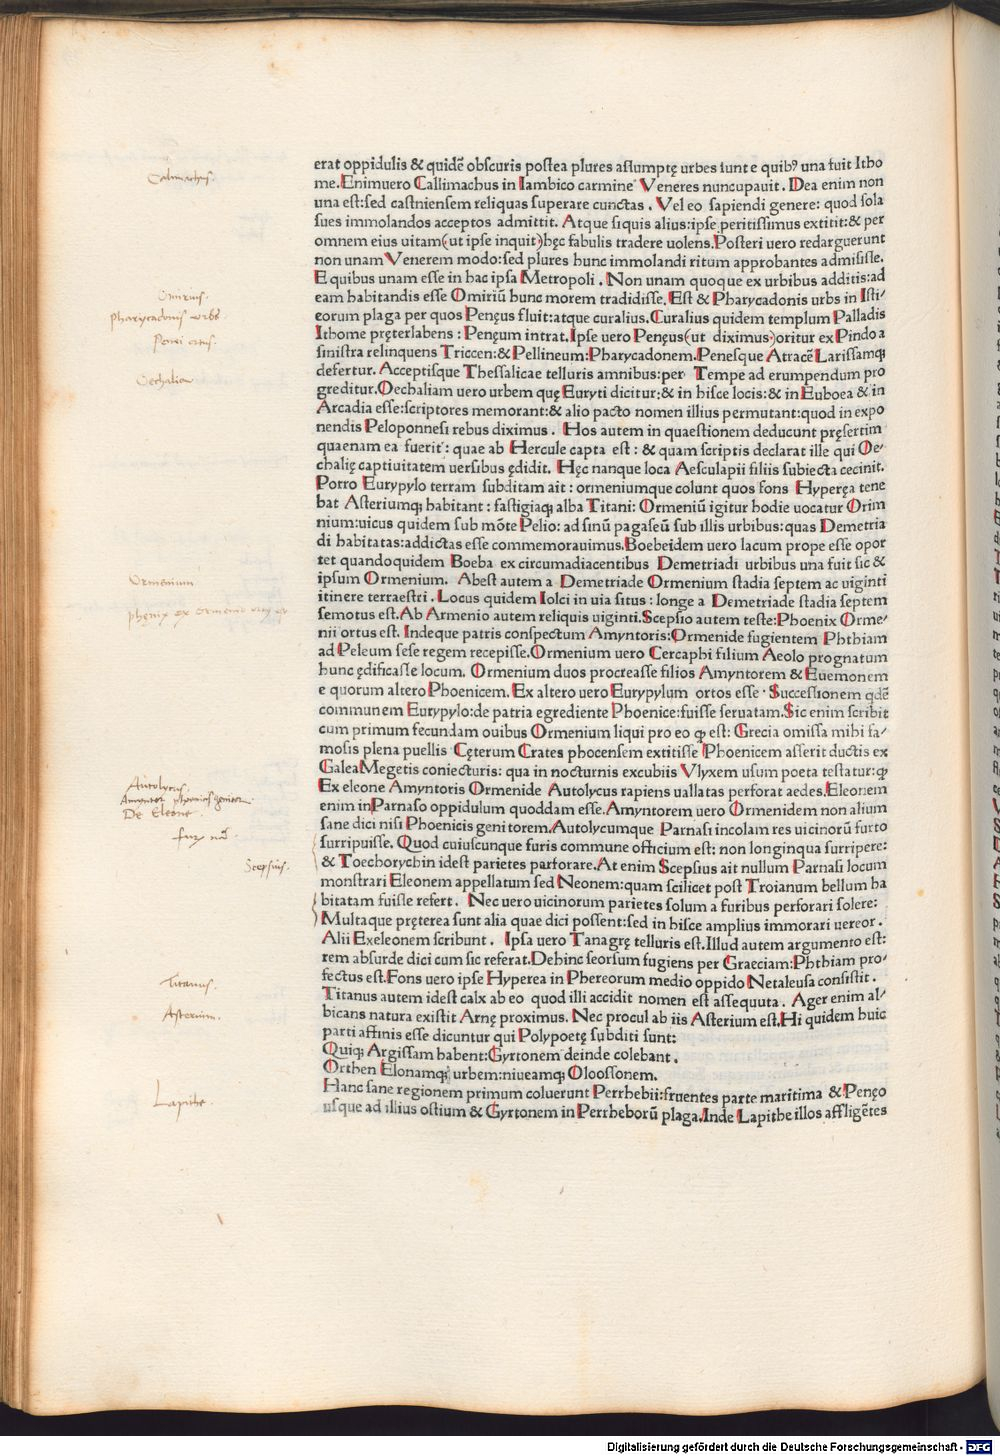 erat oppidulis & quidē obscuris postea plures assumptę urbes sunt e quibꝰ una fuit Itho
me.Enimuero Callimachus in Iambico carmine Veneres nuncupauit. Dea enim non
una est:sed castniensem reliquas superare cunctas. Vel eo sapiendi genere: quod sola
sues immolandos acceptos admittit. Atque siquis alius:ipse peritissimus extitit:& per
omnem eius uitam(ut ipse inquit)hęc fabulis tradere uolens.Posteri uero redarguerunt
non unam Venerem modo:sed plures hunc immolandi ritum approbantes admisisse.
E quibus unam esse in hac ipsa Metropoli. Non unam quoque ex urbibus additis:ad
eam habitandis esse Omiriū hunc morem tradidisse. Est & Pharycadonis urbs in Isti
eorum plaga per quos Penęus fluit:atque curalius.Curalius quidem templum Palladis
Ithome pręterlabens: Penęum intrat.Ipse uero Penęus(ut diximus)oritur ex Pindo a
sinistra relinquens Triccen:& Pellineum:Pharycadonem.Penesque Atracē Larissamqꝫ
defertur. Acceptisque Thessalicae telluris amnibus:per Tempe ad erumpendum pro
greditur.Oechaliam uero urbem quę Euryti dicitur:& in hisce locis:& in Euboea & in
Arcadia esse:scriptores memorant:& alio pacto nomen illius permutant:quod in expo
nendis Peloponnesi rebus diximus. Hos autem in quaestionem deducunt pręsertim
quaenam ea fuerit: quae ab Hercule capta est: & quam scriptis declarat ille qui Oe⸗
chalię captiuitatem uersibus ędidit. Hęc nanque loca Aesculapii filiis subiecta cecinit.
Porro Eurypylo terram subditam ait: ormeniumque colunt quos fons Hyperęa tene
bat Asteriumqꝫ habitant: fastigiaqꝫ alba Titani: Ormeniū igitur hodie uocatur Orim
nium:uicus quidem sub mōte Pelio: ad sinū pagaseū sub illis urbibus:quas Demetria
di habitatas:addictas esse commemorauimus.Boebeidem uero lacum prope esse opor
tet quandoquidem Boeba ex circumadiacentibus Demetriadi urbibus una fuit sic &
ipsum Ormenium. Abest autem a Demetriade Ormenium stadia septem ac uiginti
itinere terraestri. Locus quidem Iolci in uia situs: longe a Demetriade stadia septem
semotus est.Ab Armenio autem reliquis uiginti.Scepsio autem teste:Phoenix Orme⸗
nii ortus est. Indeque patris conspectum Amyntoris:Ormenide fugientem Phthiam
ad Peleum sese regem recepisse.Ormenium uero Cercaphi filium Aeolo prognatum
hunc ędificasse locum. Ormenium duos procreasse filios Amyntorem & Euemonem
e quorum altero Phoenicem. Ex altero uero Eurypylum ortos esse. Successionem qdē
communem Eurypylo:de patria egrediente Phoenice:fuisse seruatam.Sic enim scribit
cum primum fecundam ouibus Ormenium liqui pro eo ꝙ est: Grecia omissa mihi fa⸗
mosis plena puellis Cęterum Crates phocensem extitisse Phoenicem asserit ductis ex
Galea Megetis coniecturis: qua in nocturnis excubiis Vlyxem usum poeta testatur:ꝙ
Ex eleone Amyntoris Ormenide Autolycus rapiens uallatas perforat aedes.Eleonem
enim in Parnaso oppidulum quoddam esse.Amyntorem uero Ormenidem non alium
sane dici nisi Phoenicis genitorem.Autolycumque Parnasi incolam res uicinorū furto
surripuisse. Quod cuiuscunque furis commune officium est: non longinqua surripere:
& Toechorychin idest parietes parforare.At enim Scepsius ait nullum Parnasi locum
monstrari Eleonem appellatum sed Neonem:quam scilicet post Troianum bellum ha
bitatam fuisse refert. Nec uero uicinorum parietes solum a furibus perforari solere:
Multaque pręterea sunt alia quae dici possent:sed in hisce amplius immorari uereor.
Alii Exeleonem scribunt. Ipsa uero Tanagrę telluris est.Illud autem argumento est:
rem absurde dici cum sic referat.Dehinc seorsum fugiens per Graeciam:Phthiam pro⸗
fectus est.Fons uero ipse Hyperea in Phereorum medio oppido Netaleusa consistit.
Titanus autem idest calx ab eo quod illi accidit nomen est assequuta. Ager enim al⸗
bicans natura existit Arnę proximus. Nec procul ab iis Asterium est.Hi quidem huic
parti affinis esse dicuntur qui Polypoetę subditi sunt:
Quiqꝫ Argissam habent:Gyrtonem deinde colebant.
Orthen Elonamqꝫ urbem:niueamqꝫ Oloossonem.
Hanc sane regionem primum coluerunt Perrhebii:fruentes parte maritima & Penęo
usque ad illius ostium & Gyrtonem in Perrheborū plaga.Inde Lapithe illos affligētes
Calimachus.
Omirius.
Pharycadonis urbs.
Penei ortus.
Oechalia
Ormenium
phęnix ex ormenio
Autolycus.
Amyntor phoenicis genitor.
De Eleone.
Scepsius.
Titanus.
Asterium.
Lapithe.
Digitalisierung gefördert durch die Deutsche Forschungsgemeinschaft - DFG